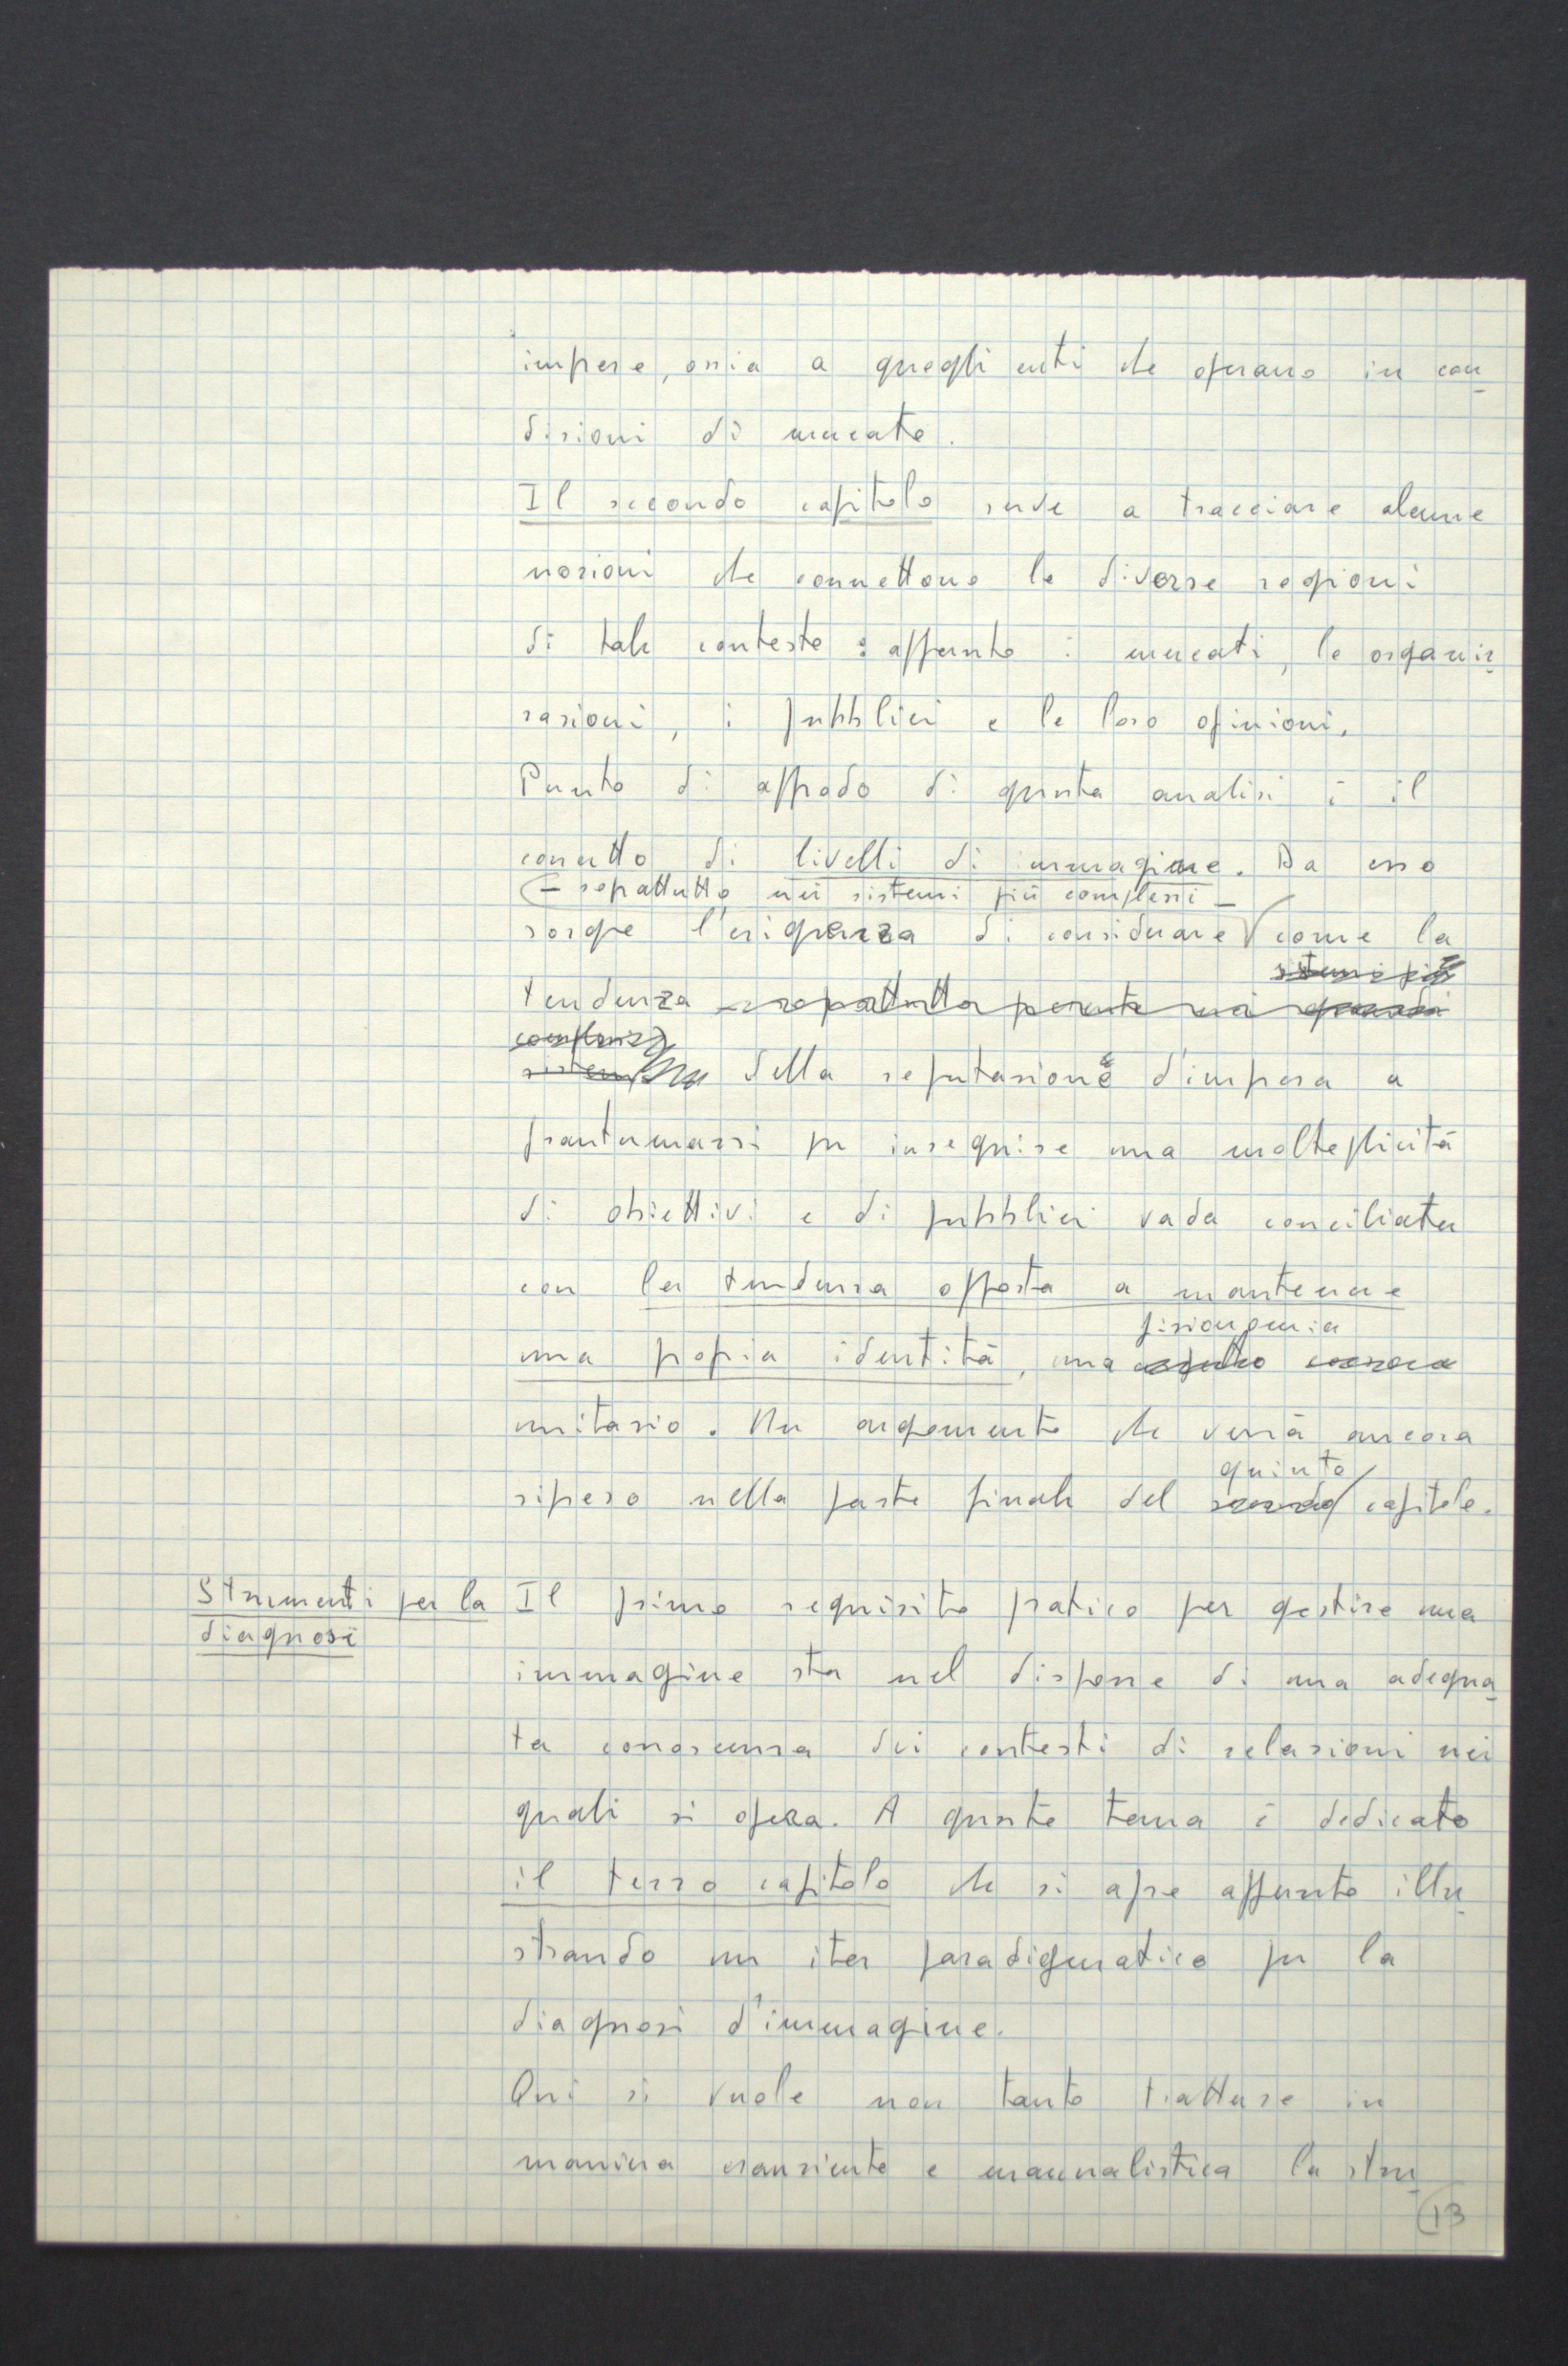 imprese, ossia a quegli enti che operano in con
dizioni di mercato.
Il secondo capitolo serve a tracciare alcune
nozioni che connettono le diverse regioni
di tale contesto: appunto i mercati, le organiz
zazioni, i pubblici e le loro opinioni.
Punto di approdo di questa analisi è il
concetto di livelli di immagine. Da esso
– soprattutto nei sistemi più complessi –
sorge l'esigenza di considerare come la
sistemi più
tendenza – soprattutto presente nei grandi
complessi
sistemi della reputazione d'impresa a
frantumarsi per inseguire una molteplicità
di obiettivi e di pubblici vada conciliata
con la tendenza opposta a mantenere
fisionomia
una propria identità, una aspetto
unitario. Un argomento che verrà ancora
quinto
ripreso nella parte finale del secondo capitolo.
Strumenti per la
diagnosi
Il primo requisito pratico per gestire una
immagine sta nel disporre di una adegua
ta conoscenza dei contesti di relazioni nei
quali si opera. A questo tema è dedicato
il terzo capitolo che si apre appunto illu
strando un iter paradigmatico per la
diagnosi d'immagine.
Qui si vuole non tanto trattare in
maniera esauriente e manualistica la stru
13